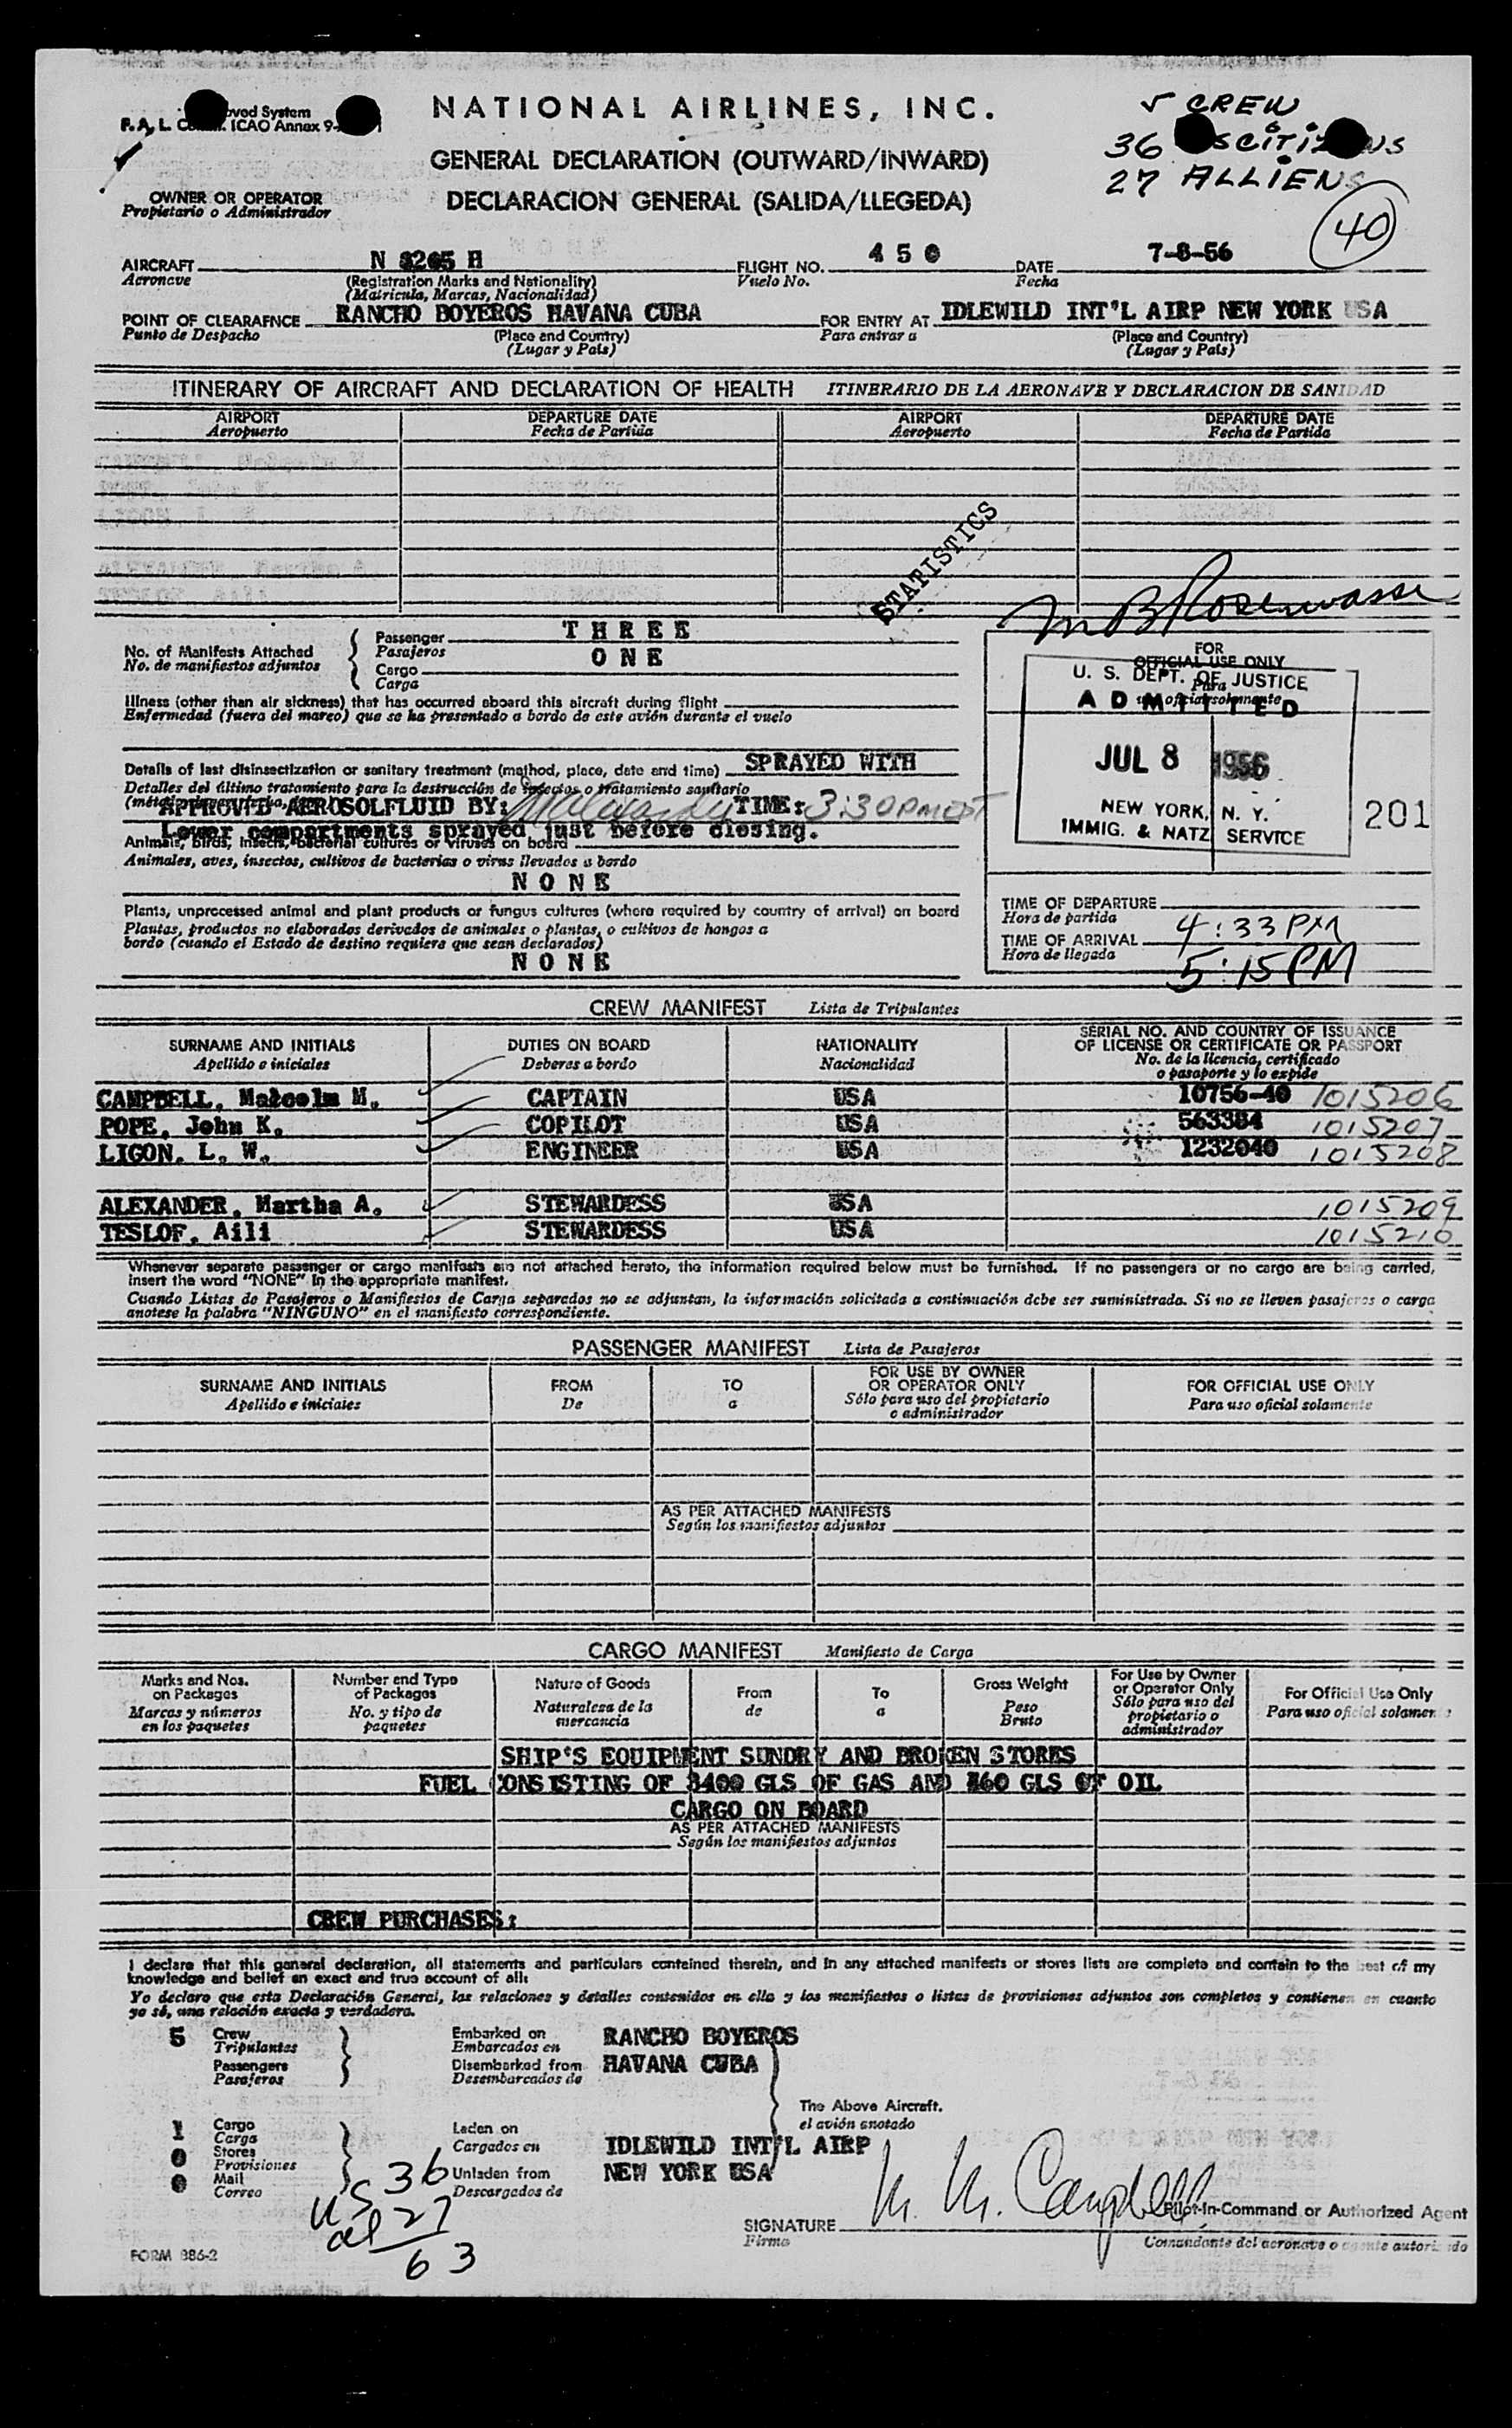 NATIONAL AIRLINES, INC.
GENERAL DECLARATION (OUTWARD/INWARD)
DECLARACION GENERAL (SALIDA/LLEGEDA)
System
F. A. L. ICAO Annex 9-
CREW
36
27 ALLIENS
40
OWNER OR OPERATOR
Propietario o Administrador
AIRCRAFT N 8265 H FLIGHT NO. 4 5 0 DATE 7-8-56
Aeronave (Registration Marks and Nationality) Vuelo No. Fecha
(Matricula, Marcas, Nacionalidad)
POINT OF CLEARAFNCE RANCHO BOYEROS HAVANA CUBA FOR ENTRY AT IDLEWILD INT'L AIRP NEW YORK USA
Punto de Despacho (Place and Country) Para entrar a (Place and Country)
(Lugar y País) (Lugar y País)
ITINERARY OF AIRCRAFT AND DECLARATION OF HEALTH ITINERARIO DE LA AERONAVE Y DECLARACION DE SANIDAD
AIRPORT DEPARTURE DATE AIRPORT DEPARTURE DATE
Aeropuerto Fecha de Partida Aeropuerto Fecha de Partida
STATISTICS
No. of Manifests Attached Passenger THREE
No. de manifiestos adjuntos Pasajeros
Cargo ONE
Carga
Illness (other than air sickness) that has occurred aboard this aircraft during flight
Enfermedad (fuera del mareo) que se ha presentado a bordo de este avión durante el vuelo
Details of last disinsectization or sanitary treatment (method, place, date and time) SPRAYED WITH
Detalles del último tratamiento para la destrucción de insectos o tratamiento sanitario
APPROVED AEROSOLFLUID BY: TIME: 3:30 PM EST
Lower compartments sprayed just before closing.
Animals, birds, insects, bacterial cultures or viruses on board
Animales, aves, insectos, cultivos de bacterias o virus llevados a bordo
NONE
Plants, unprocessed animal and plant products or fungus cultures (where required by country of arrival) on board
Plantas, productos no elaborados derivados de animales o plantas, o cultivos de hongos a
bordo (cuando el Estado de destino requiera que sean declarados)
NONE
FOR
OFFICIAL USE ONLY
Para
U. S. DEPT. OF JUSTICE
ADMITTED
JUL 8 1956
NEW YORK, N. Y.
IMMIG. & NATZ SERVICE
201
TIME OF DEPARTURE 4:33 PM
Hora de partida
TIME OF ARRIVAL 5:15 PM
Hora de llegada
CREW MANIFEST Lista de Tripulantes
SURNAME AND INITIALS DUTIES ON BOARD NATIONALITY SERIAL NO. AND COUNTRY OF ISSUANCE
OF LICENSE OR CERTIFICATE OR PASSPORT
Apellido e iniciales Deberes a bordo Nacionalidad No. de la licencia, certificado
o pasaporte y lo expide
CAMPBELL, Malcolm M. CAPTAIN USA 10756-40 1015206
POPE, John K. COPILOT USA 563384 1015207
LIGON, L. W. ENGINEER USA 1232040 1015208
ALEXANDER, Martha A. STEWARDESS USA 1015209
TESLOF, Aili STEWARDESS USA 1015210
Whenever separate passenger or cargo manifests are not attached hereto, the information required below must be furnished. If no passengers or no cargo are being carried,
insert the word "NONE" in the appropriate manifest.
Cuando Listas de Pasajeros o Manifiestos de Carga separados no se adjuntan, la información solicitada a continuación debe ser suministrada. Si no se lleven pasajeros o carga
anotese la palabra "NINGUNO" en el manifiesto correspondiente.
PASSENGER MANIFEST Lista de Pasajeros
SURNAME AND INITIALS FROM TO FOR USE BY OWNER OR OPERATOR ONLY FOR OFFICIAL USE ONLY
Apellido e iniciales De a Sólo para uso del propietario o administrador Para uso oficial solamente
AS PER ATTACHED MANIFESTS
Según los manifiestos adjuntos
CARGO MANIFEST Manifiesto de Carga
Marks and Nos. on Packages Number and Type of Packages Nature of Goods From To Gross Weight For Use by Owner or Operator Only For Official Use Only
Marcas y números en los paquetes No. y tipo de paquetes Naturaleza de la mercancia de a Peso Bruto Sólo para uso del propietario o administrador Para uso oficial solamente
SHIP'S EQUIPMENT SUNDRY AND BROKEN STORES
FUEL CONSISTING OF 3400 GLS OF GAS AND 160 GLS OF OIL
CARGO ON BOARD
AS PER ATTACHED MANIFESTS
Según los manifiestos adjuntos
CREW PURCHASES:
I declare that this general declaration, all statements and particulars contained therein, and in any attached manifests or stores lists are complete and contain to the best of my
knowledge and belief an exact and true account of all:
Yo declaro que esta Declaración General, las relaciones y detalles contenidos en ella y los manifiestos o listas de provisiones adjuntos son completos y contienen en cuanto
yo sé, una relación exacta y verdadera.
5 Crew Embarked on RANCHO BOYEROS
Tripulantes Embarcados en
Passengers Disembarked from HAVANA CUBA
Pasajeros Desembarcados de
The Above Aircraft.
el avión anotado
1 Cargo Laden on IDLEWILD INT'L AIRP
Carga Cargados en
0 Stores
Provisiones
0 Mail Unladen from NEW YORK USA
Correo Descargados de
US 36
al 27
63
SIGNATURE M. M. Campbell Pilot-in-Command or Authorized Agent
Firma Comandante del aeronave o agente autorizado
FORM 886-2